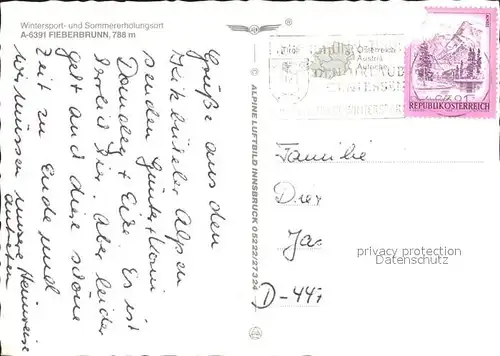 Wintersport- und Sommererholungsort
A-6391 FIEBERBRUNN, 788 m
®
Grüße aus den
Kitzbüheler Alpen
senden Günter, Romi
Domdey + Eike. Es ist
herrlich hier. Aber leider
geht auch diese schöne
Zeit zu Ende und
wir müssen unsere Heimreise
antreten
© ALPINE LUFTBILD INNSBRUCK 05222/27324
Tirol
Österreich
Austria
Autriche
REPUBLIK ÖSTERREICH
Familie
Jas
D-447
privacy protection
Datenschutz